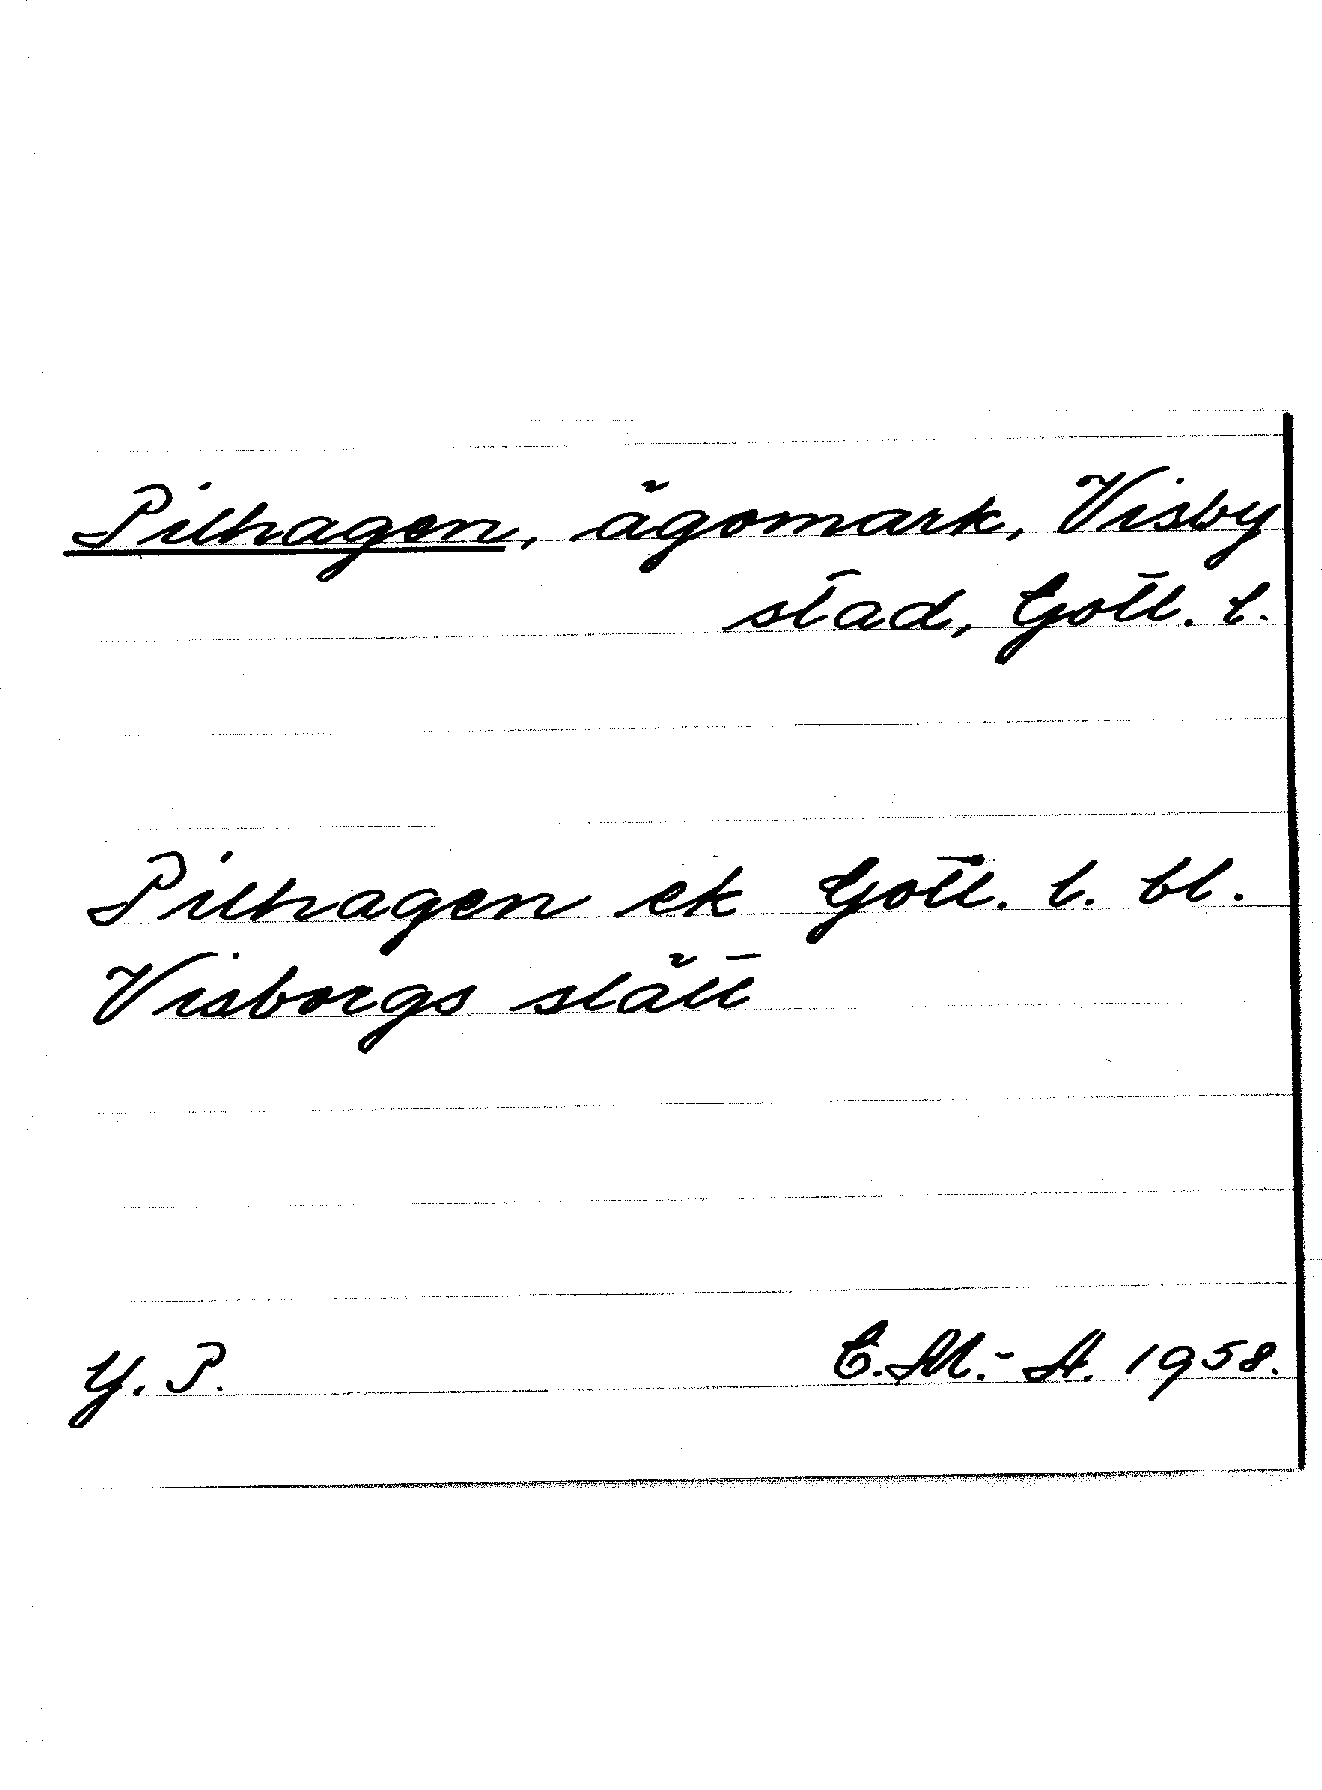 Pilhagen, ägomark, Visby
stad, Gotl. l.
Pilhagen ek Gotl. l. bl.
Visborgs slätt
Y. P.
E. M.-A. 1958.